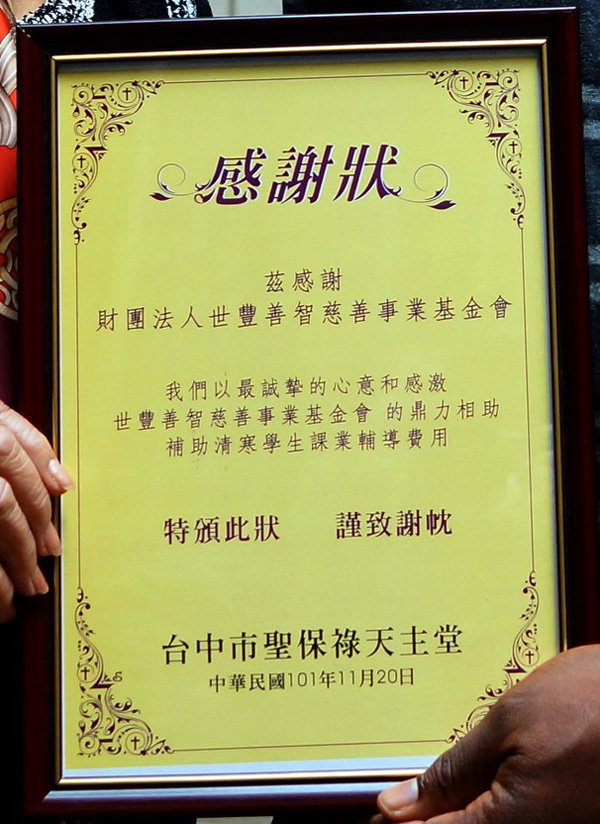 感謝狀
茲感謝
財團法人世豐善智慈善事業基金會
我們以最誠摯的心意和感激
世豐善智慈善事業基金會 的鼎力相助
補助清寒學生課業輔導費用
特頒此狀 謹致謝忱
台中市聖保祿天主堂
中華民國101年11月20日